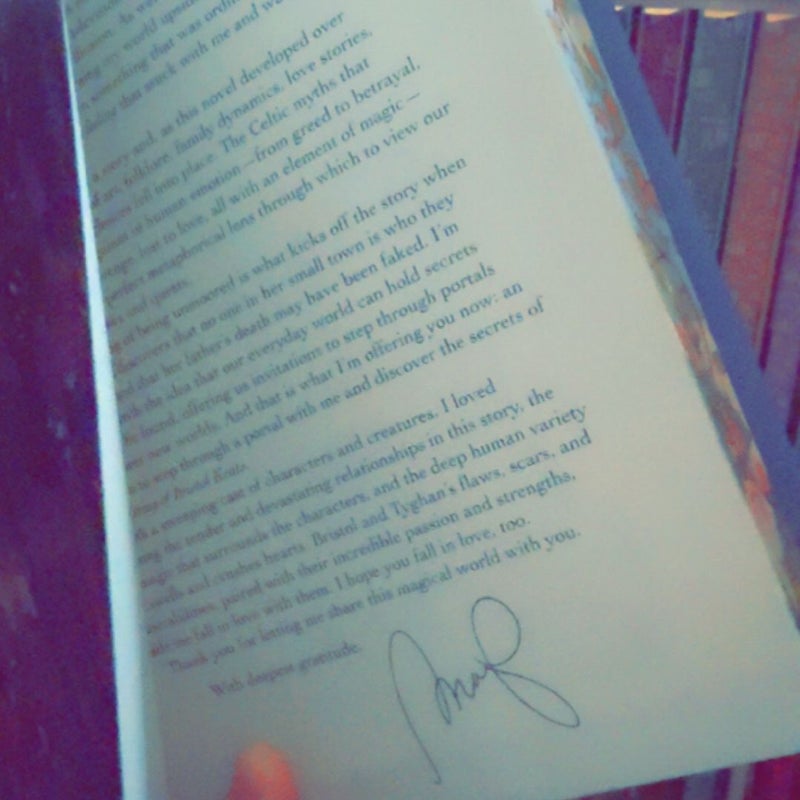 something that was
that stuck with me and
story and, as this novel developed over
art, folklore, family dynamics, love stories,
fell into place. The Celtic myths that
of human emotion—from greed to betrayal,
lust to love, all with an element of magic—
perfect metaphorical lens through which to view our
and quests.
of being unmoored is what kicks off the story when
discovers that no one in her small town is who they
and that her father's death may have been faked. I'm
with the idea that our everyday world can hold secrets
be found, offering us invitations to step through portals
new worlds. And that is what I'm offering you now: an
to step through a portal with me and discover the secrets of
of Bristol Keats.
a stunning cast of characters and creatures. I loved
the tender and devastating relationships in this story, the
magic that surrounds the characters, and the deep human variety
swells and crushes hearts. Bristol and Tyghan's flaws, scars, and
vulnerabilities, paired with their incredible passion and strengths,
made me fall in love with them. I hope you fall in love, too.
Thank you for letting me share this magical world with you.
With deepest gratitude,